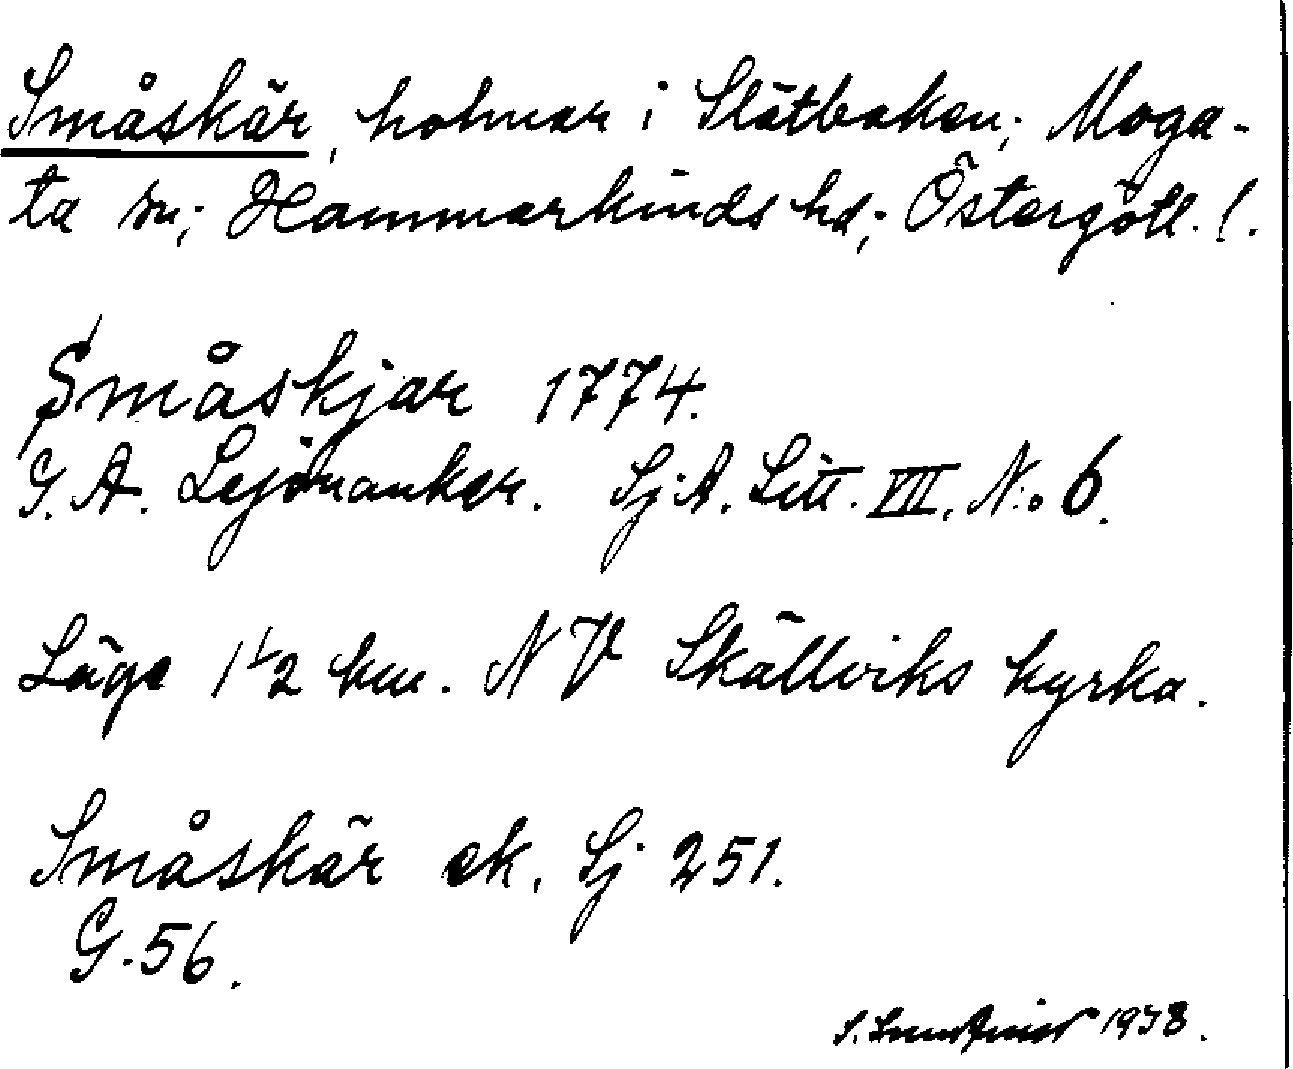 Småskär, holmar i Slätbaken; Moga-
ta sn; Hammarkinds hd; Östergötl. l.
Småskjar 1774.
G. A. Lejonanker. Sj. A. Litt. VII. N:o 6.
Läge 1 1/2 km. NV Skällviks kyrka.
Småskär ek. Sj 251.
G. 56.
S. 1938.